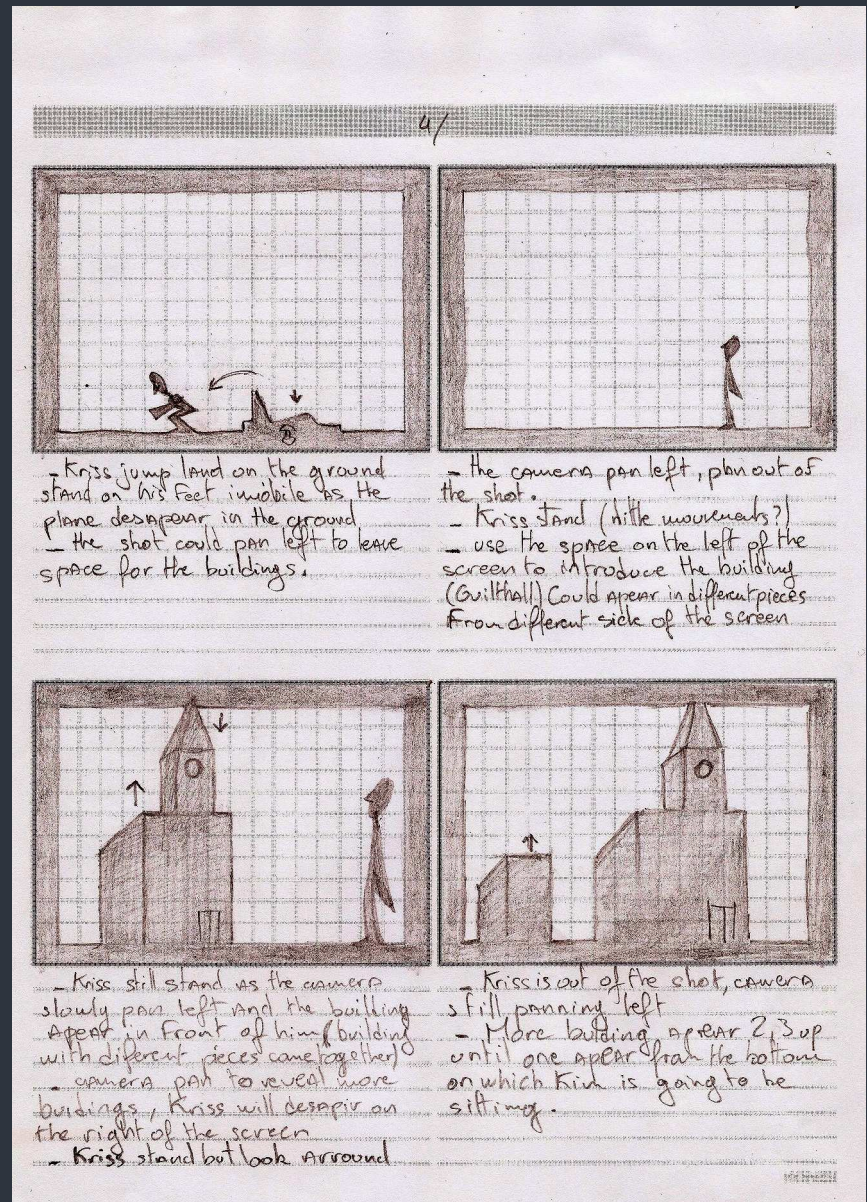 4/
- Kriss jump land on the ground
stand on his feet imobile as the
plane desapear in the ground
- the shot could pan left to leave
space for the buildings.
- the camera pan left, plan out of
the shot.
- Kriss stand (little mouvements?)
- use the space on the left of the
screen to introduce the building
(Guilthall) Could apear in different pieces
From different side of the screen
- Kriss still stand as the camera
slowly pan left and the builling
Apear in Front of him (building
with diferent pieces come together)
- camera pan to reveal more
buildings, Kriss will desapir on
the right of the screen
- Kriss stand but look arround
- Kriss is out of the shot, camera
still panning left
- More building apear 2, 3 up
until one apear from the bottom
on which Kim is going to be
sitting.